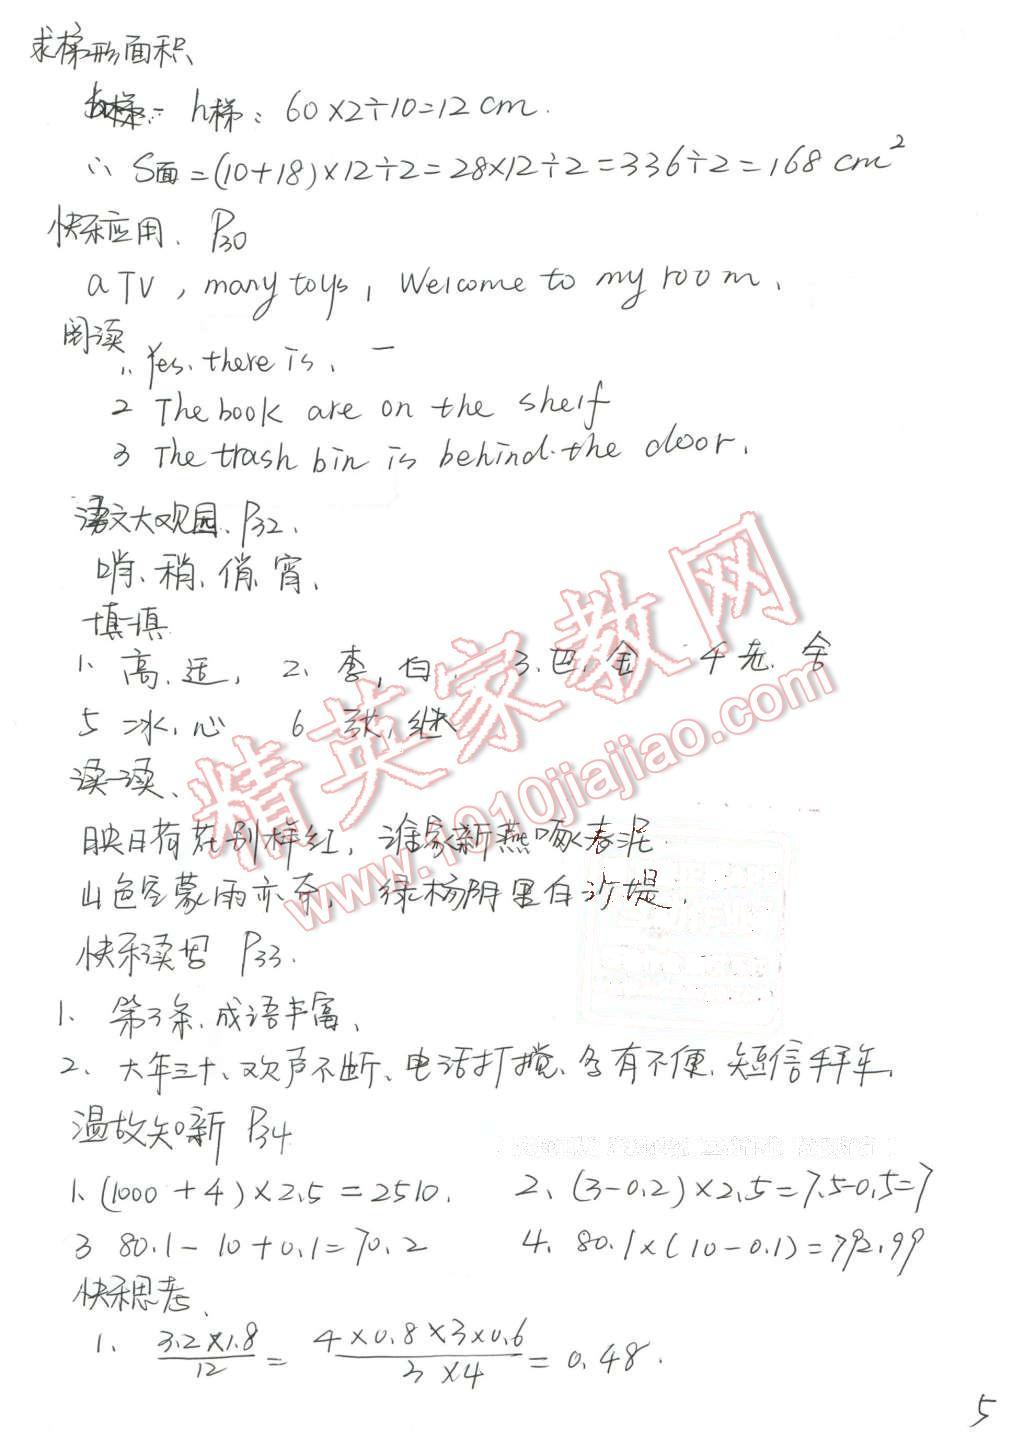 求梯形面积
h梯：60×2÷10=12cm.
∴ S面=(10+18)×12÷2=28×12÷2=336÷2=168 cm²
快乐应用. P30
a TV, many toys, Welcome to my room.
阅读
1. Yes. there is. 一
2 The book are on the shelf
3 The trash bin is behind the door.
语文大观园. P32.
哨、稍、俏、宵.
填一填
1、高.适, 2、李,白. 3.巴.金 4老.舍
5 冰,心 6. 欧,继
读一读、
映日荷花别样红, 谁家新燕啄春泥.
山色空蒙雨亦奇, 绿杨阴里白沙堤.
快乐读书 P33.
1、第3条.成语丰富、
2、大年三十、欢声不断、电话打搅、多有不便.短信拜年.
温故知新 P34
1、(1000+4)×2.5=2510. 2、(3-0.2)×2.5=7.5-0.5=7
3 80.1-10+0.1=70.2 4. 80.1×(10-0.1)=792.99
快乐思考、
1、 3.2×1.8/12 = 4×0.8×3×0.6/3×4 = 0.48.
5
精英家教网
www.1010jiajiao.com